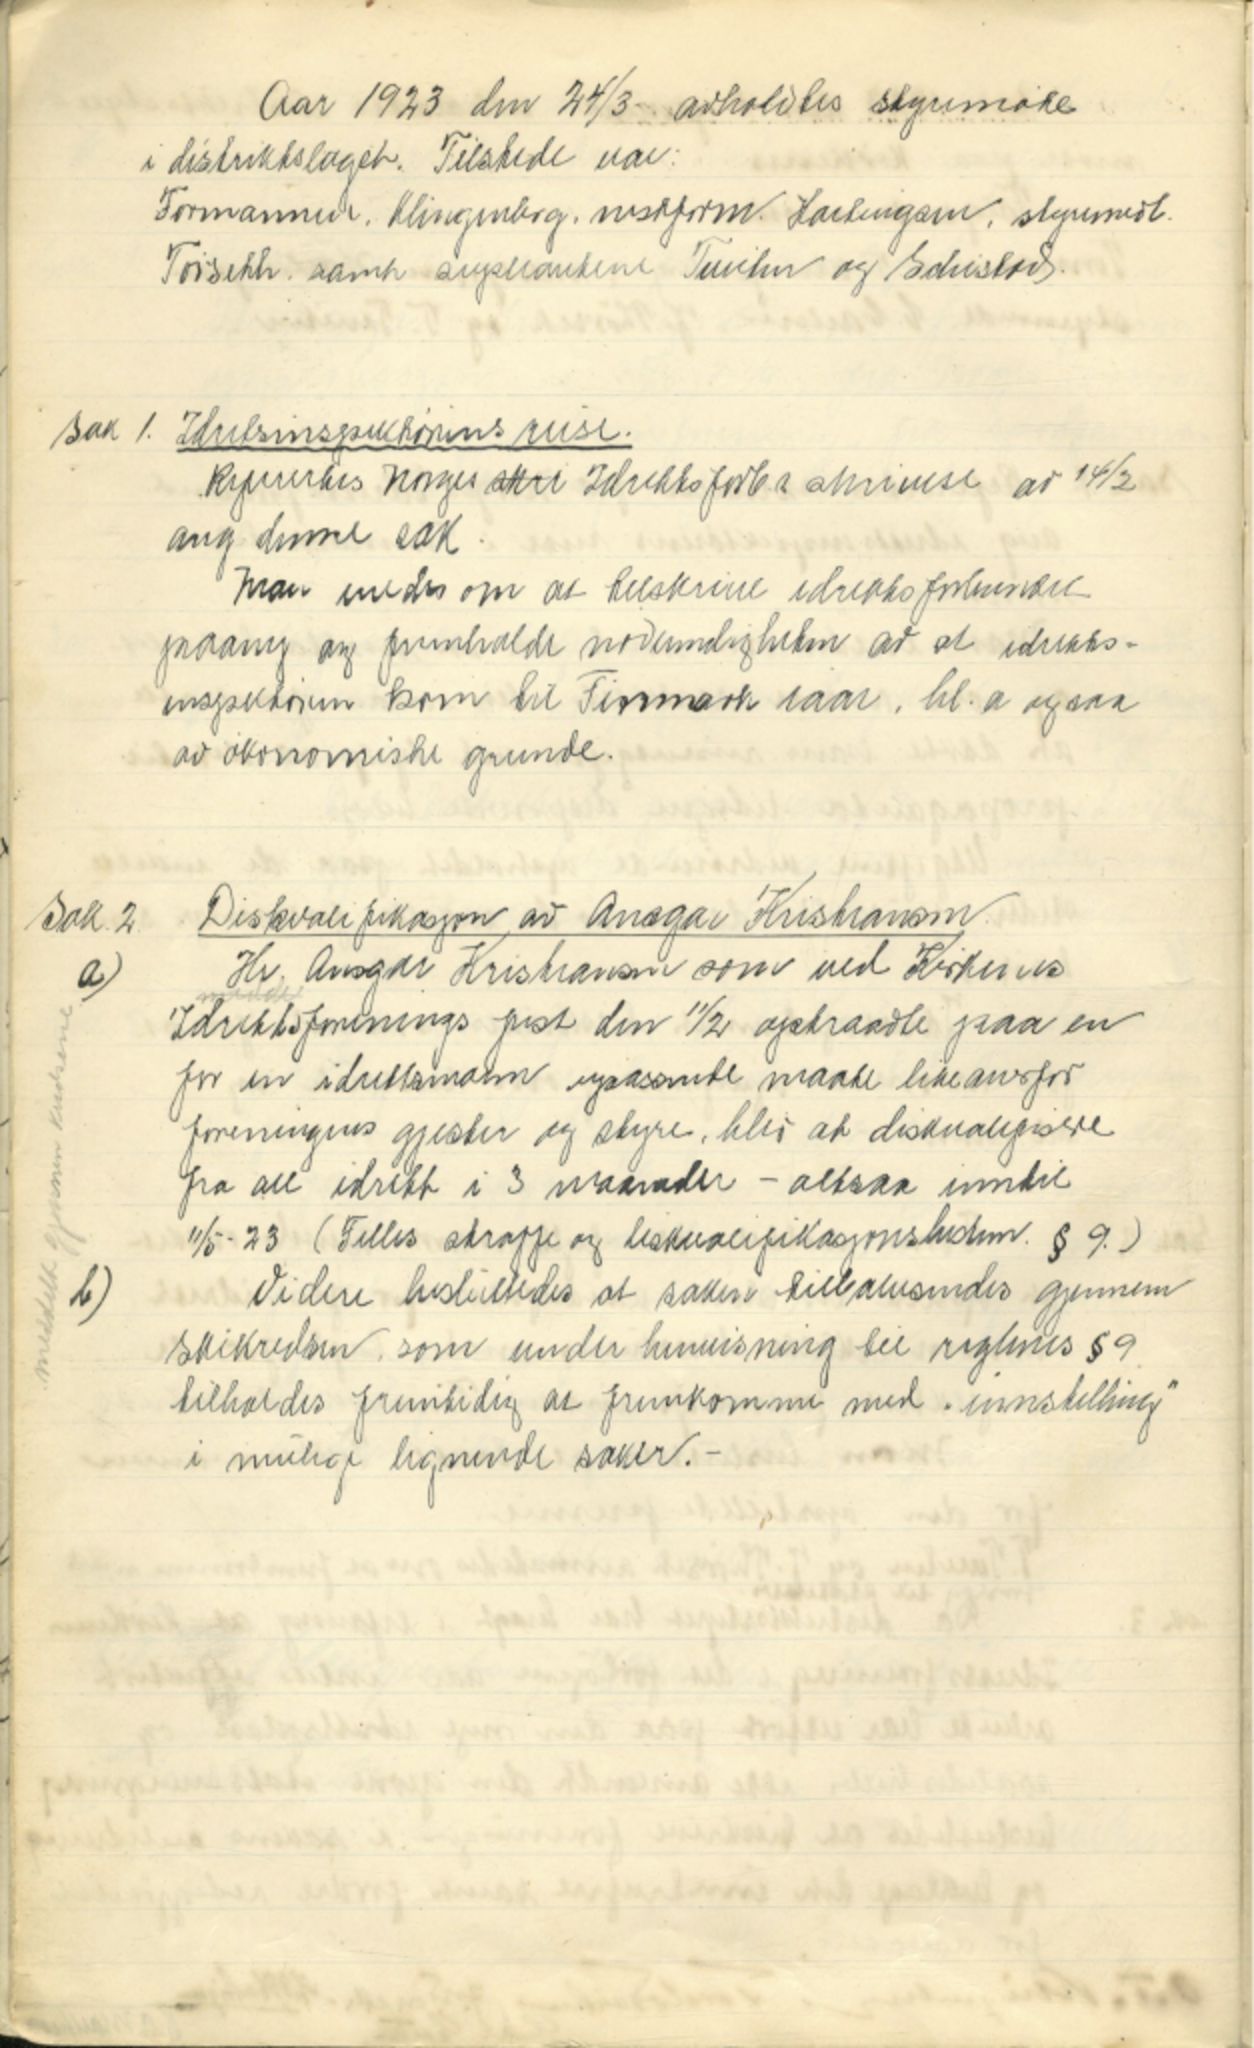 Aar 1923 den 24/3 avholdtes styremøte
i distriktslaget. Tilstede var:
Formannen, Klingenberg, nestform. Hartvigsen, styremedl.
Torseth samt suppleantene Tuvhn og Schistad.
Sak 1. Idrætsinspektørens reise.
Refirertes Norges Idrettsforb.s skrivelse av 14/2
ang denne sak.
Man vedtes om at tilskrive idrettsforbundet
paany og fremholde nødvendigheten av at idretts-
inspektøren kom til Finmark iaar, bl. a ogsaa
av økonomiske grunde.
Sak 2 Diskvalifikasjon av Ansgar Kristiansen.
a) Hr. Ansgar Kristiansen som ved Kirkenes
Idrettsforenings fest den 11/2 optraadte paa en
for en idrettsmann upassende maate likeoverfor
foreningens gjester og styre, blev at diskvalifisere
fra all idrett i 3 maaneder - altsaa inntil
11/5-23 (Felles straffe og diskvalifikasjonsbestem. § 9.)
b) Videre besluttedes at saken tilbakesendes gjennem
skikredsen, som under henvisning til reglenes § 9
tilholdes fremtidig at fremkomme med "innstilling"
i mulige lignende saker. -
meddelt gjennem kredsene